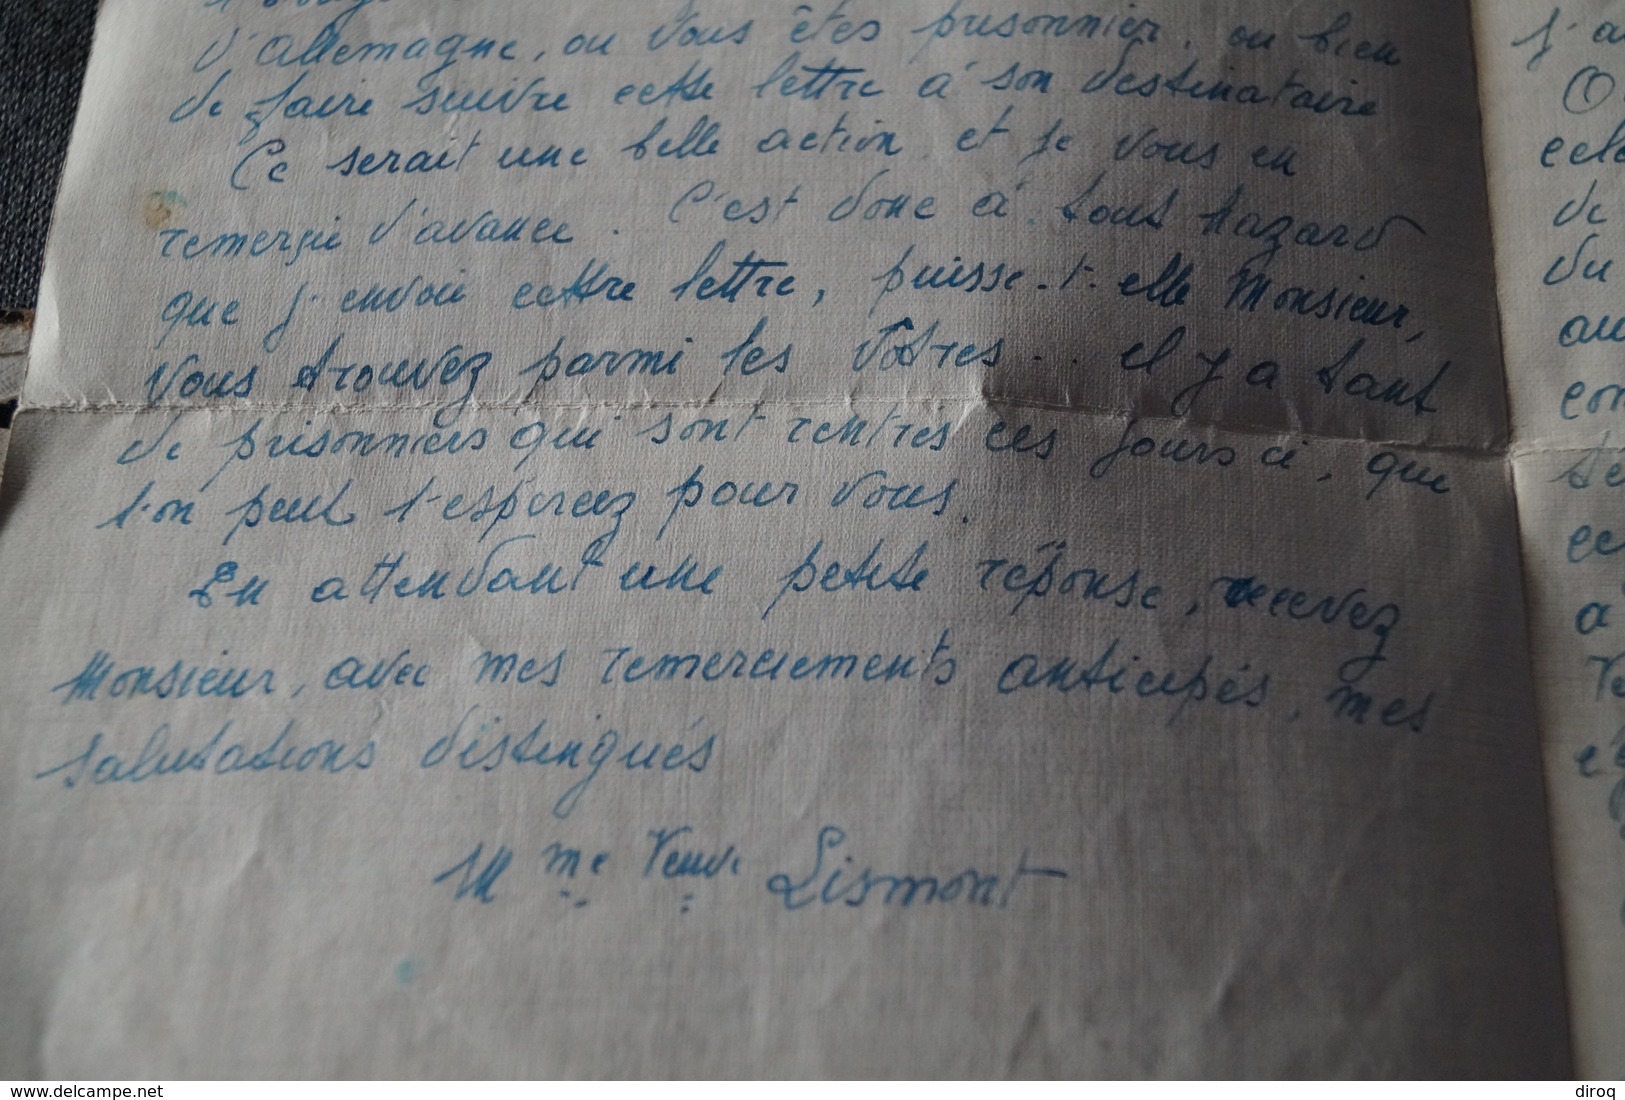 d'Allemagne, ou vous êtes prisonnier, ou bien
de faire suivre cette lettre à son destinataire
Ce serait une belle action et je vous en
remerçie d'avance. C'est donc à tout hazard
que j'envoie cette lettre, puisse-t-elle Monsieur,
vous trouvez parmi les Vôtres.. il y a tant
de prisonniers qui sont rentrés ces jours ci, que
l'on peut l'espérez pour vous.
En attendant une petite réponse, recevez
Monsieur, avec mes remerciements anticipés, mes
salutations distingués
Mme Veuve Lismont
de
du
a
delcampe.net
diroq